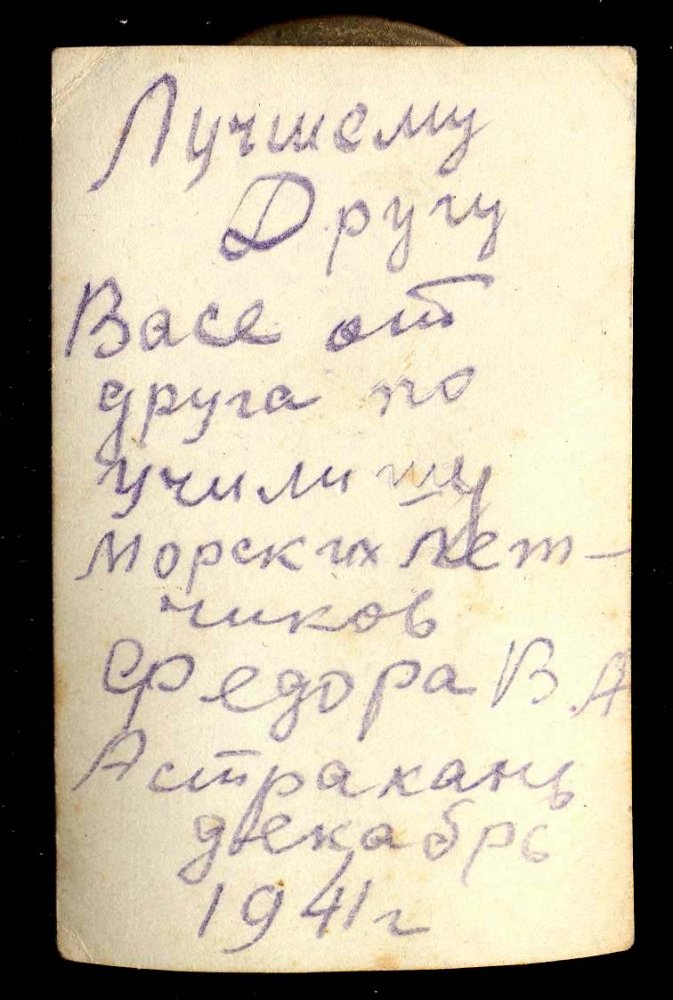 Лучшему
Другу
Васе от
друга по
училищу
морских лет-
чиков
Федора В.А
Астракань
декабрь
1941г